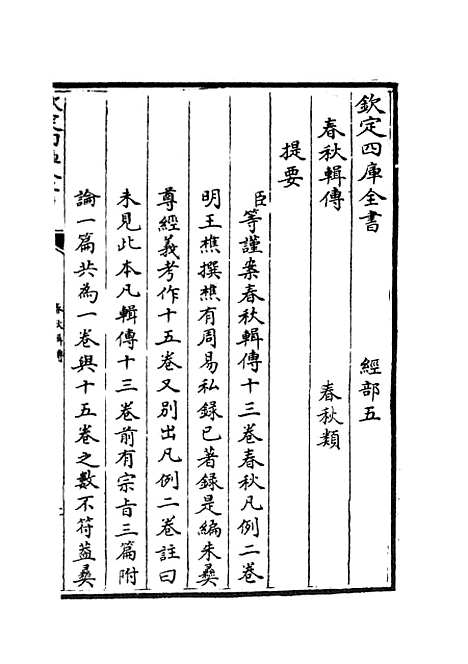 欽定四庫全書　經部五
春秋輯傳　春秋類
提要
臣等謹案春秋輯傳十三卷春秋凡例二卷
明王樵撰樵有周易私録已著録是編朱彝
尊經義考作十五卷又别出凡例二卷註曰
未見此本凡輯傳十三卷前有宗旨三篇附
論一篇共為一卷與十五卷之數不符葢彝
春秋輯傳